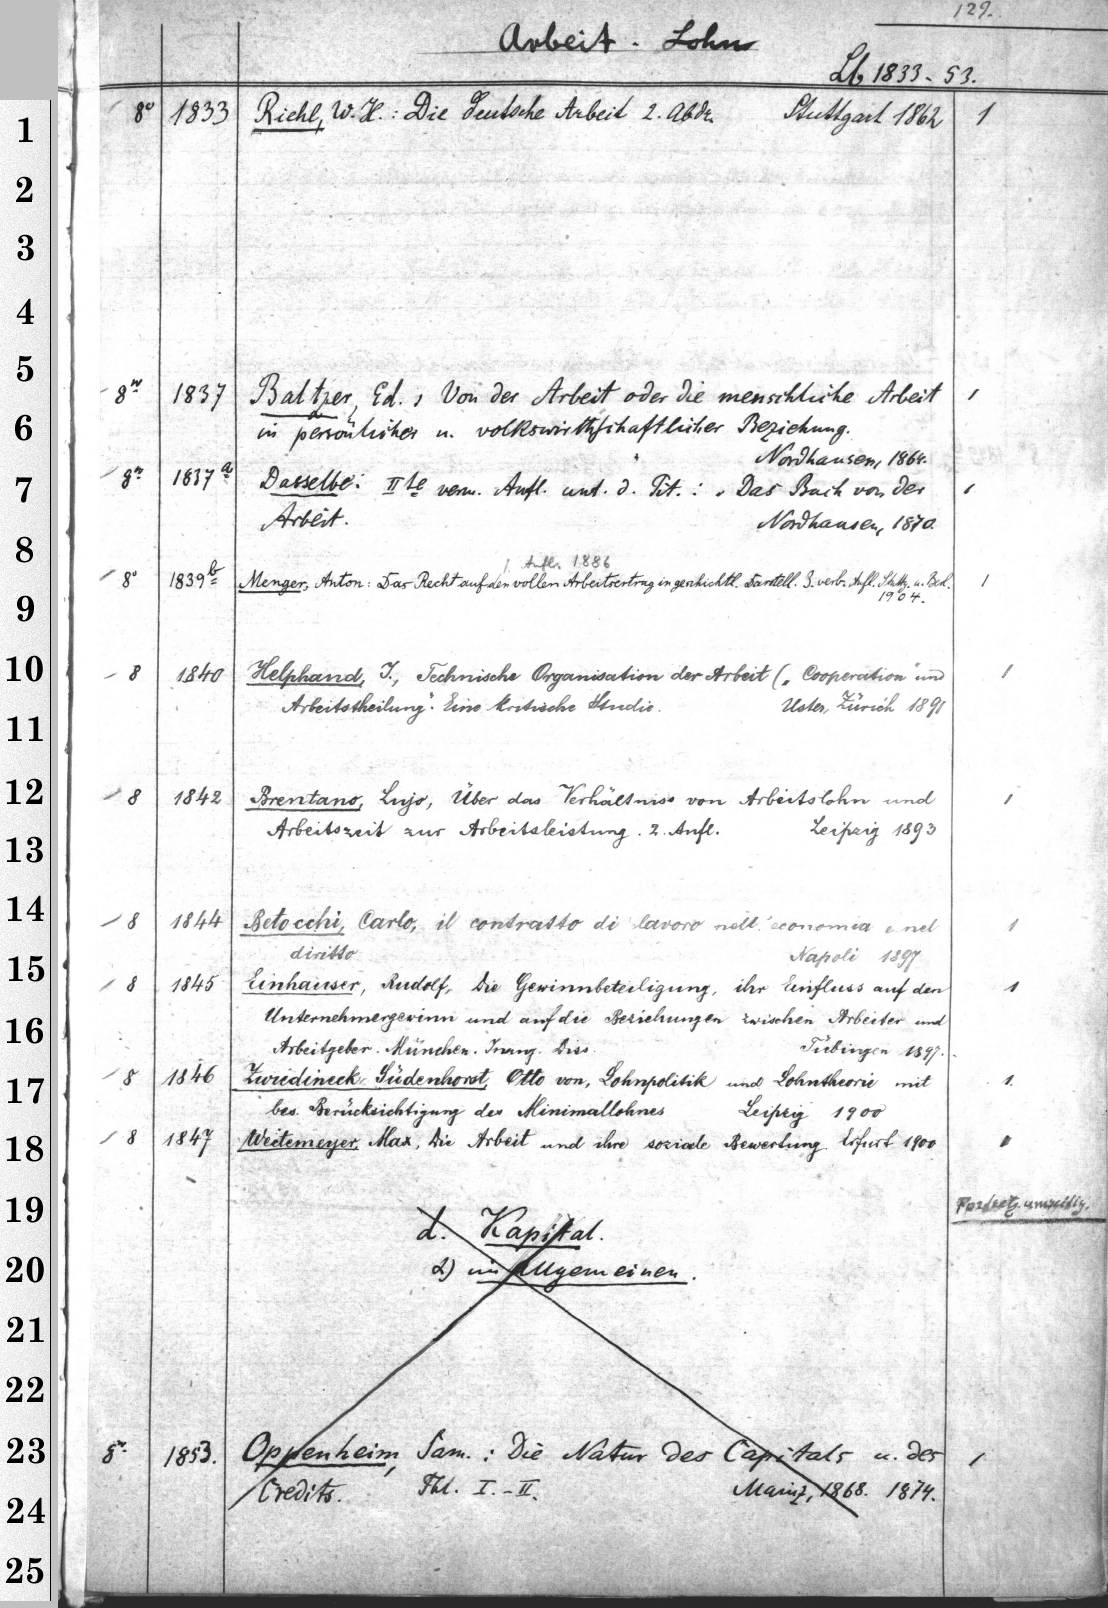 129.
Arbeit - Lohn
Lb 1833 - 53.
8º 1833 Riehl, W. H.: Die deutsche Arbeit 2. Abdr. Stuttgart 1862 1
8º 1837 Baltzer, Ed., Von der Arbeit oder die menschliche Arbeit 1
in persönlicher u. volkswirthschaftlicher Beziehung.
Nordhausen, 1864.
8º 1837a Dasselbe: IIte verm. Aufl. unt. d. Tit.: "Das Buch von der 1
Arbeit. Nordhausen, 1870.
1. Aufl. 1886
8º 1839b Menger, Anton: Das Recht auf den vollen Arbeitsertrag in geschichtl. Darstell. 3. verb. Aufl. Stuttg. u. Berl. 1
1904.
8 1840 Helphand, I., Technische Organisation der Arbeit („Cooperation" und 1
Arbeitstheilung". Eine kritische Studie. Uster, Zürich 1891
8 1842 Brentano, Lujo, Über das Verhältniss von Arbeitslohn und 1
Arbeitszeit zur Arbeitsleistung. 2. Aufl. Leipzig 1893
8 1844 Betocchi, Carlo, il contratto di lavoro nell' economia e nel 1
diritto Napoli 1897
8 1845 Einhauser, Rudolf, Die Gewinnbeteiligung, ihr Einfluss auf den 1
Unternehmergewinn und auf die Beziehungen zwischen Arbeiter und
Arbeitgeber. München. Inaug. Diss. Tübingen 1897.
8 1846 Zwiedineck-Südenhorst, Otto von, Lohnpolitik und Lohntheorie mit 1.
bes. Berücksichtigung des Minimallohnes Leipzig 1900
8 1847 Weitemeyer, Max, Die Arbeit und ihre soziale Bewertung Erfurt 1900
Fordsetz. umseitig.
d. Kapital.
2) im Allgemeinen.
8º 1853. Oppenheim, Sam.: Die Natur des Capitals u. des 1
Credits. Thl. I.-II. Mainz, 1868. 1874.
1
2
3
4
5
6
7
8
9
10
11
12
13
14
15
16
17
18
19
20
21
22
23
24
25